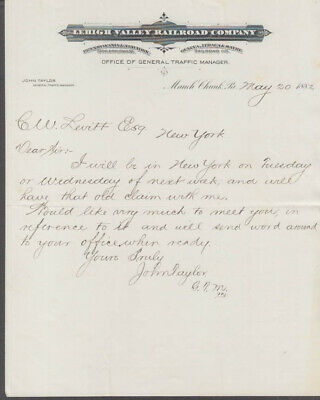 LEHIGH VALLEY RAILROAD COMPANY
OFFICE OF GENERAL TRAFFIC MANAGER.
JOHN TAYLOR
GENERAL TRAFFIC MANAGER
Mauch Chunk, Pa May 20 1882
C. W. Levitt Esq
New York
Dear Sir:-
I will be in New York on Tuesday
or Wednesday of next week, and will
have that old claim with me.
Would like very much to meet you, in
reference to it and will send word around
to your office when ready
Yours Truly
John Taylor
G. T. M.